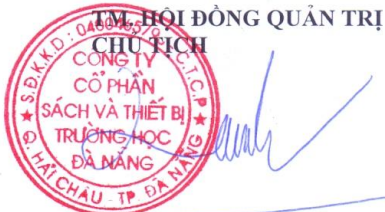 TM. HỘI ĐỒNG QUẢN TRỊ
CHỦ TỊCH
CÔNG TY
CỔ PHẦN
SÁCH VÀ THIẾT BỊ
TRƯỜNG HỌC
ĐÀ NẴNG
Q. HẢI CHÂU - TP ĐÀ NẴNG